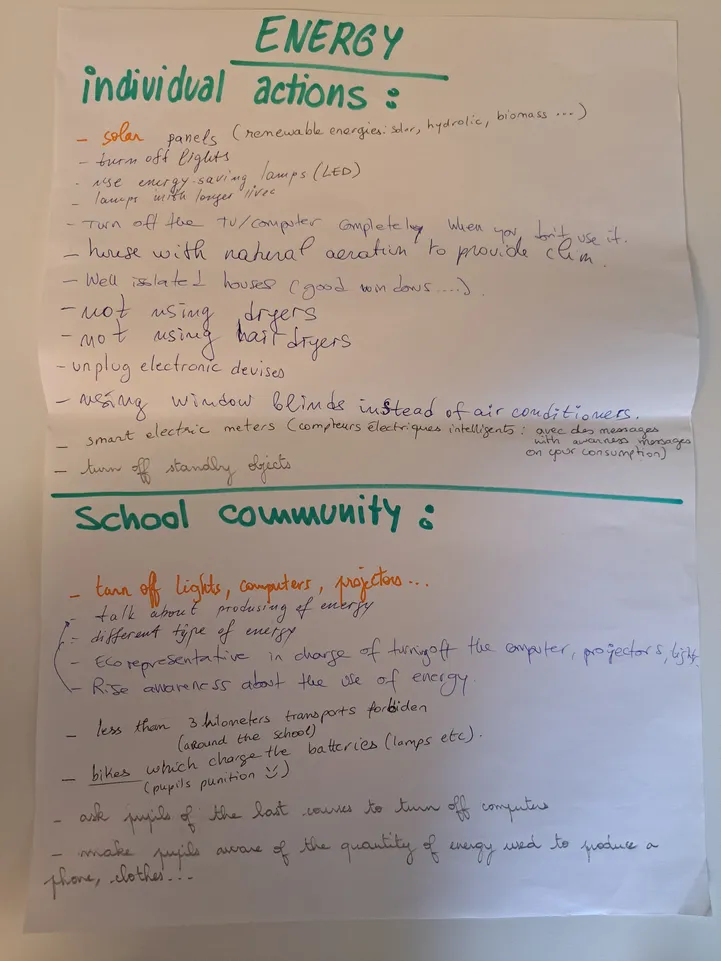 ENERGY
individual actions :
- solar panels (renewable energies: solar, hydrolic, biomass ...)
- turn off lights
- use energy-saving lamps (LED)
- lamps with longer lives
- Turn off the TV/computer completely when you don't use it.
- house with natural aeration to provide clim.
- Well isolated houses (good windows....).
- not using dryers
- not using hair dryers
- unplug electronic devises
- using window blinds instead of air conditioners.
- smart electric meters (compteurs électriques intelligents : avec des messages
with awarness messages
on your consumption)
- turn off standby objects
School community :
- turn off lights, computers, projectors...
- talk about produsing of energy
- different type of energy
- Eco representative in charge of turning off the computer, projectors, light
- Rise awareness about the use of energy.
- less than 3 kilometers transports forbiden
(around the school)
- bikes which charge the batteries (lamps etc).
(pupils punition)
- ask pupils of the last courses to turn off computers
- make pupils aware of the quantity of energy used to produce a
phone, clothes...